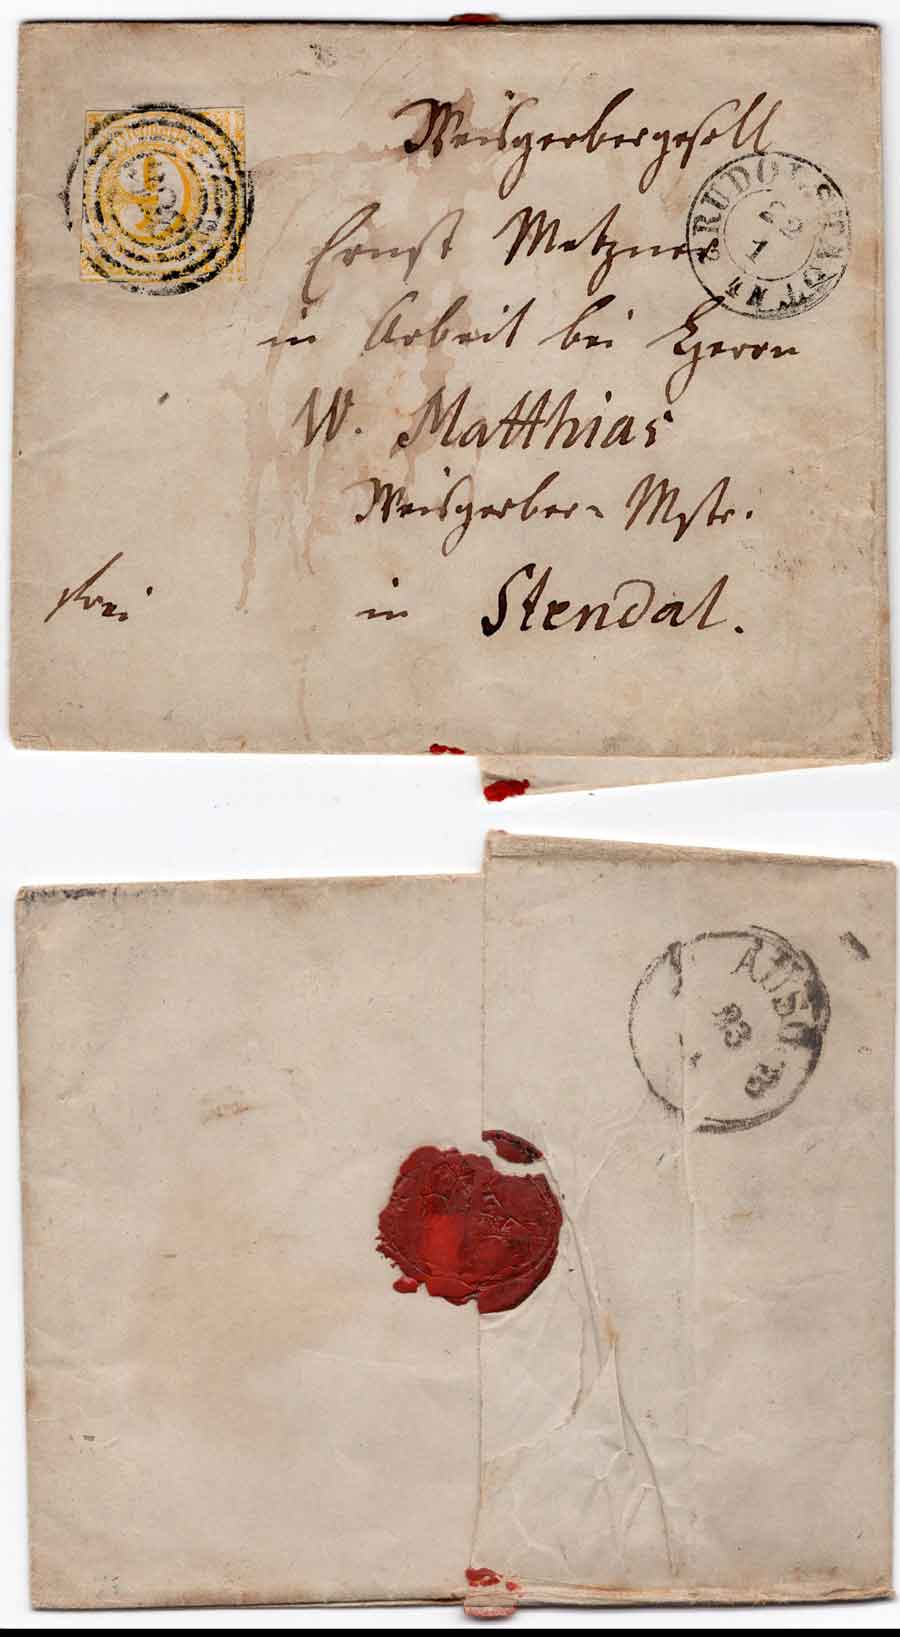 Weisgerbergesell
Ernst Metzner
in Arbeit bei Herrn
W. Matthias
Weisgerber- Mstr.
frei in Stendal.
RUDOLSTADT
22
1
AUSG
23